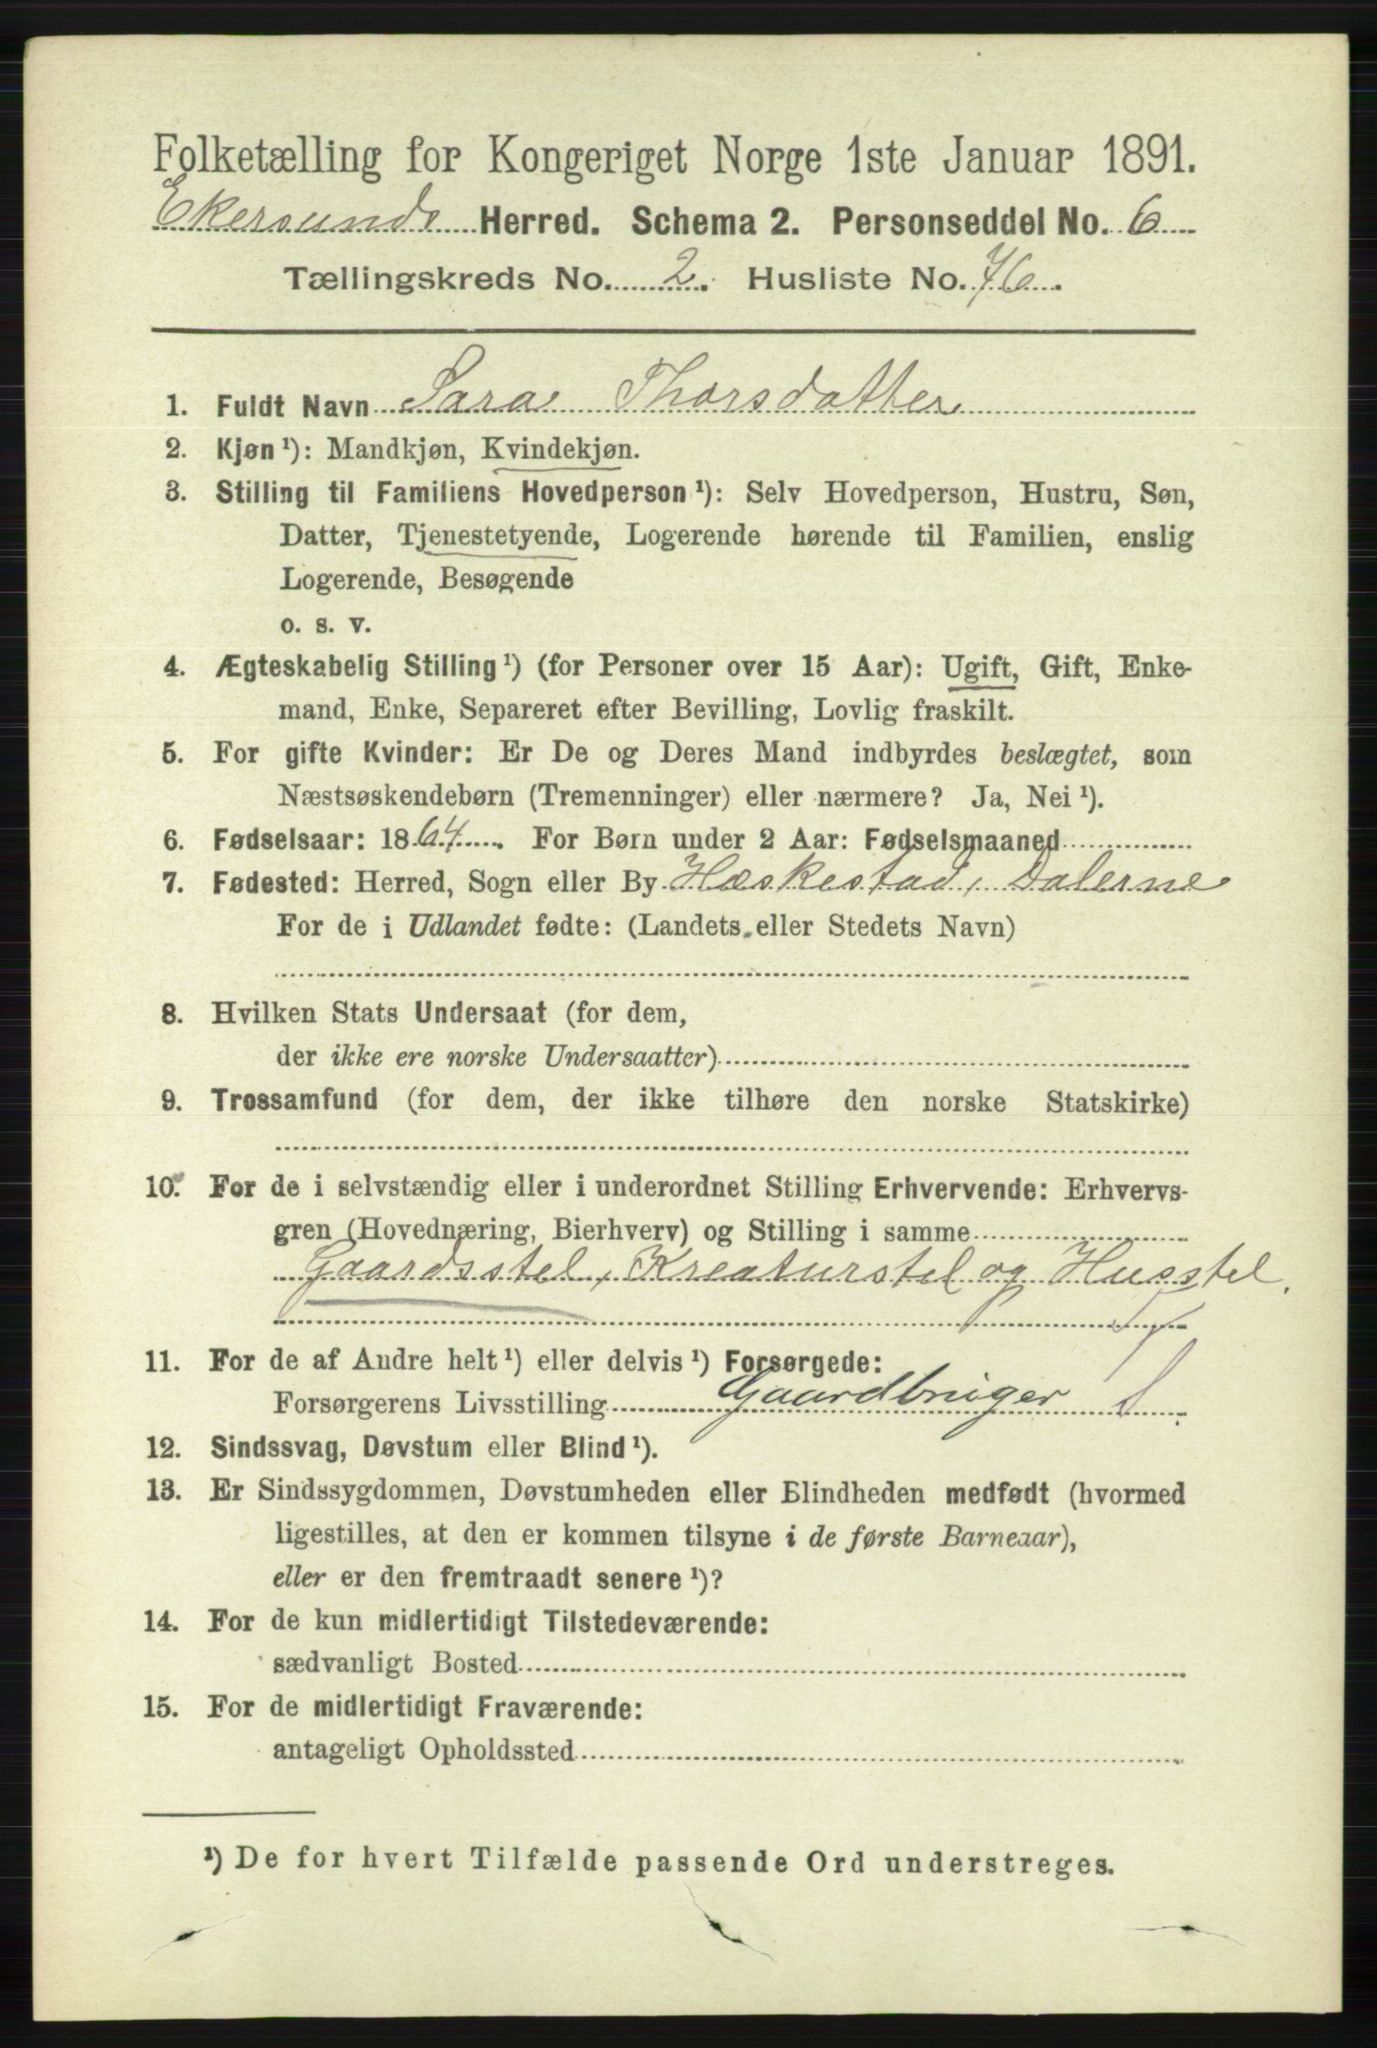 Folketælling for Kongeriget Norge 1ste Januar 1891.
Ekersunds Herred. Schema 2. Personseddel No. 6
Tællingskreds No. 2. Husliste No. 76.
1. Fuldt Navn Sara Thorsdatter
2. Kjøn¹): Mandkjøn, Kvindekjøn.
3. Stilling til Familiens Hovedperson¹): Selv Hovedperson, Hustru, Søn,
Datter, Tjenestetyende, Logerende hørende til Familien, enslig
Logerende, Besøgende
o. s. v.
4. Ægteskabelig Stilling¹) (for Personer over 15 Aar): Ugift, Gift, Enke-
mand, Enke, Separeret efter Bevilling, Lovlig fraskilt.
5. For gifte Kvinder: Er De og Deres Mand indbyrdes beslægtet, som
Næstsøskendebørn (Tremenninger) eller nærmere? Ja, Nei¹).
6. Fødselsaar: 1864. For Børn under 2 Aar: Fødselsmaaned
7. Fødested: Herred, Sogn eller By Hæskestad, Dalerne
For de i Udlandet fødte: (Landets eller Stedets Navn)
8. Hvilken Stats Undersaat (for dem,
der ikke ere norske Undersaatter)
9. Trossamfund (for dem, der ikke tilhøre den norske Statskirke)
10. For de i selvstændig eller i underordnet Stilling Erhvervende: Erhvervs-
gren (Hovednæring, Bierhverv) og Stilling i samme
Gaardsstel, Kreaturstel og Husstel.
11. For de af Andre helt¹) eller delvis¹) Forsørgede:
Forsørgerens Livsstilling Gaardbruger
12. Sindssvag, Døvstum eller Blind¹).
13. Er Sindssygdommen, Døvstumheden eller Blindheden medfødt (hvormed
ligestilles, at den er kommen tilsyne i de første Barneaar),
eller er den fremtraadt senere¹)?
14. For de kun midlertidigt Tilstedeværende:
sædvanligt Bosted
15. For de midlertidigt Fraværende:
antageligt Opholdssted
¹) De for hvert Tilfælde passende Ord understreges.